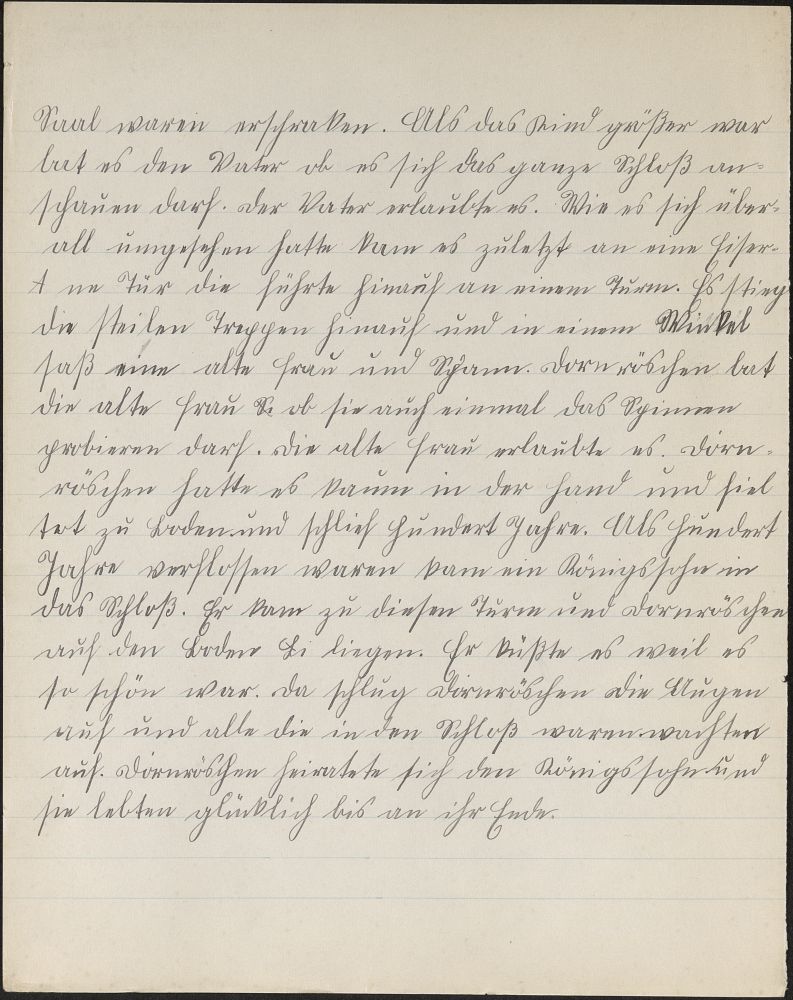 Saal waren erschraken. Als das Kind größer war
bat es den Vater ob es sich das ganze Schloß an-
schauen darf. Der Vater erlaubte es. Wie es sich über-
all umgesehen hatte kam es zuletzt an eine Eiser-
ne Tür die führte hinauf an einem Turm. Es stieg
die steilen Treppen hinauf und in einem Winkel
saß eine alte Frau und Spann. Dornröschen bat
die alte Frau ob sie auch einmal das Spinnen
probieren darf. Die alte Frau erlaubte es. Dorn-
röschen hatte es kaum in der Hand und fiel
tot zu Boden und schlief hundert Jahre. Als hundert
Jahre verflossen waren kam ein Königssohn in
das Schloß. Er kam zu diesen Turm und Dornröschen
auf den Boden liegen. Er küßte es weil es
so schön war. Da schlug Dornröschen die Augen
auf und alle die in den Schloß waren wachten
auf. Dornröschen heiratete sich den Königssohn und
sie lebten glücklich bis an ihr Ende.